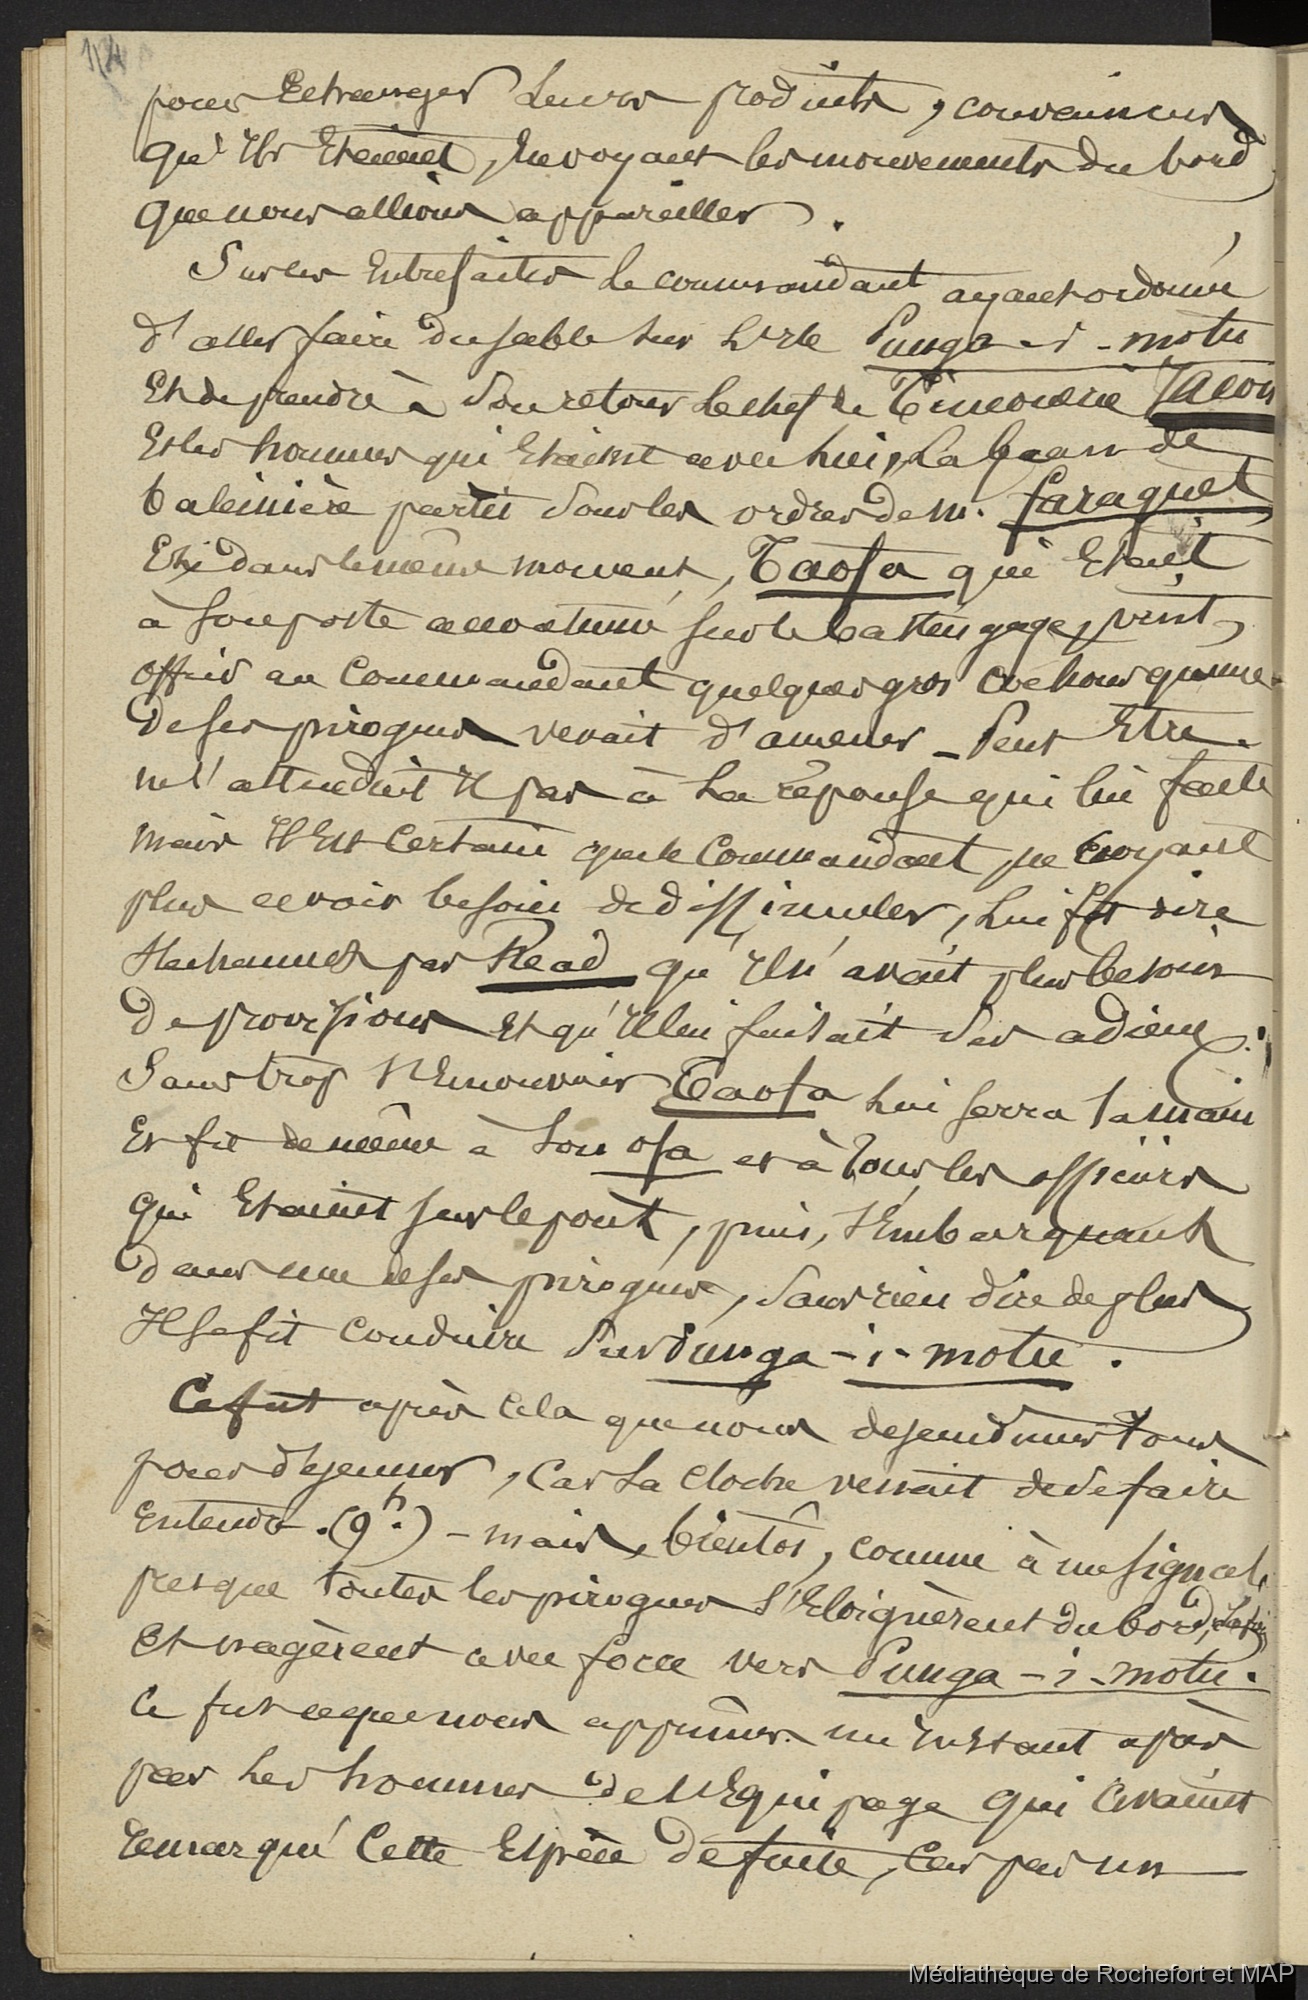 114
pour Echanger Leurs produits, convaincus
qu'Ils Etaient, En voyant les mouvements du bord
que nous allions appareiller.
Sur ces Entrefaites Le commandant ayant ordonné
d'aller faire du sable sur L'Ile Punga-i-motu
Et de prendre à Son retour Le chef de Timonerie Jacon
Et les hommes qui Etaient avec lui, La
baleinière partit Sous les ordres de M. Faraguet
Et dans le même moment, Taofa qui Etait
à Son poste accoutumé sur le bastingage, vint
offrir au Commandant quelques gros cochons qu'une
de ses pirogues venait d'amener - Peut Etre
ne S'attendait Il pas à La réponse qui lui faite
mais Il Est Certain que le Commandant ne croyant
plus avoir besoin de dissimuler, Lui fit dire
par Read qu'Il n'avait plus besoin
de provisions Et qu'Il lui faisait Ses adieux.
Sans trop S'Emouvoir Taofa Lui serra La main
Et fit de même à Son ofa et à Tous les officiers
qui Etaient sur le pont, puis, S'Embarquant
dans une de ses pirogues, Sans rien dire de plus
Il se fit conduire Sur Punga-i-motu.
Ce fut après Cela que nous descendimes Tous
pour déjeuner, Car La cloche venait de Se faire
Entendre. (9h.) - mais, bientôt, comme à un signal,
presque toutes les pirogues S'Eloignèrent du bord,
Et nagèrent avec force vers Punga-i-motu.
Ce fut ce que nous apprîmes un Instant après
par Les hommes de L'Equipage qui avaient
remarqué Cette Espèce de fuite, Car par un
Médiathèque de Rochefort et MAP